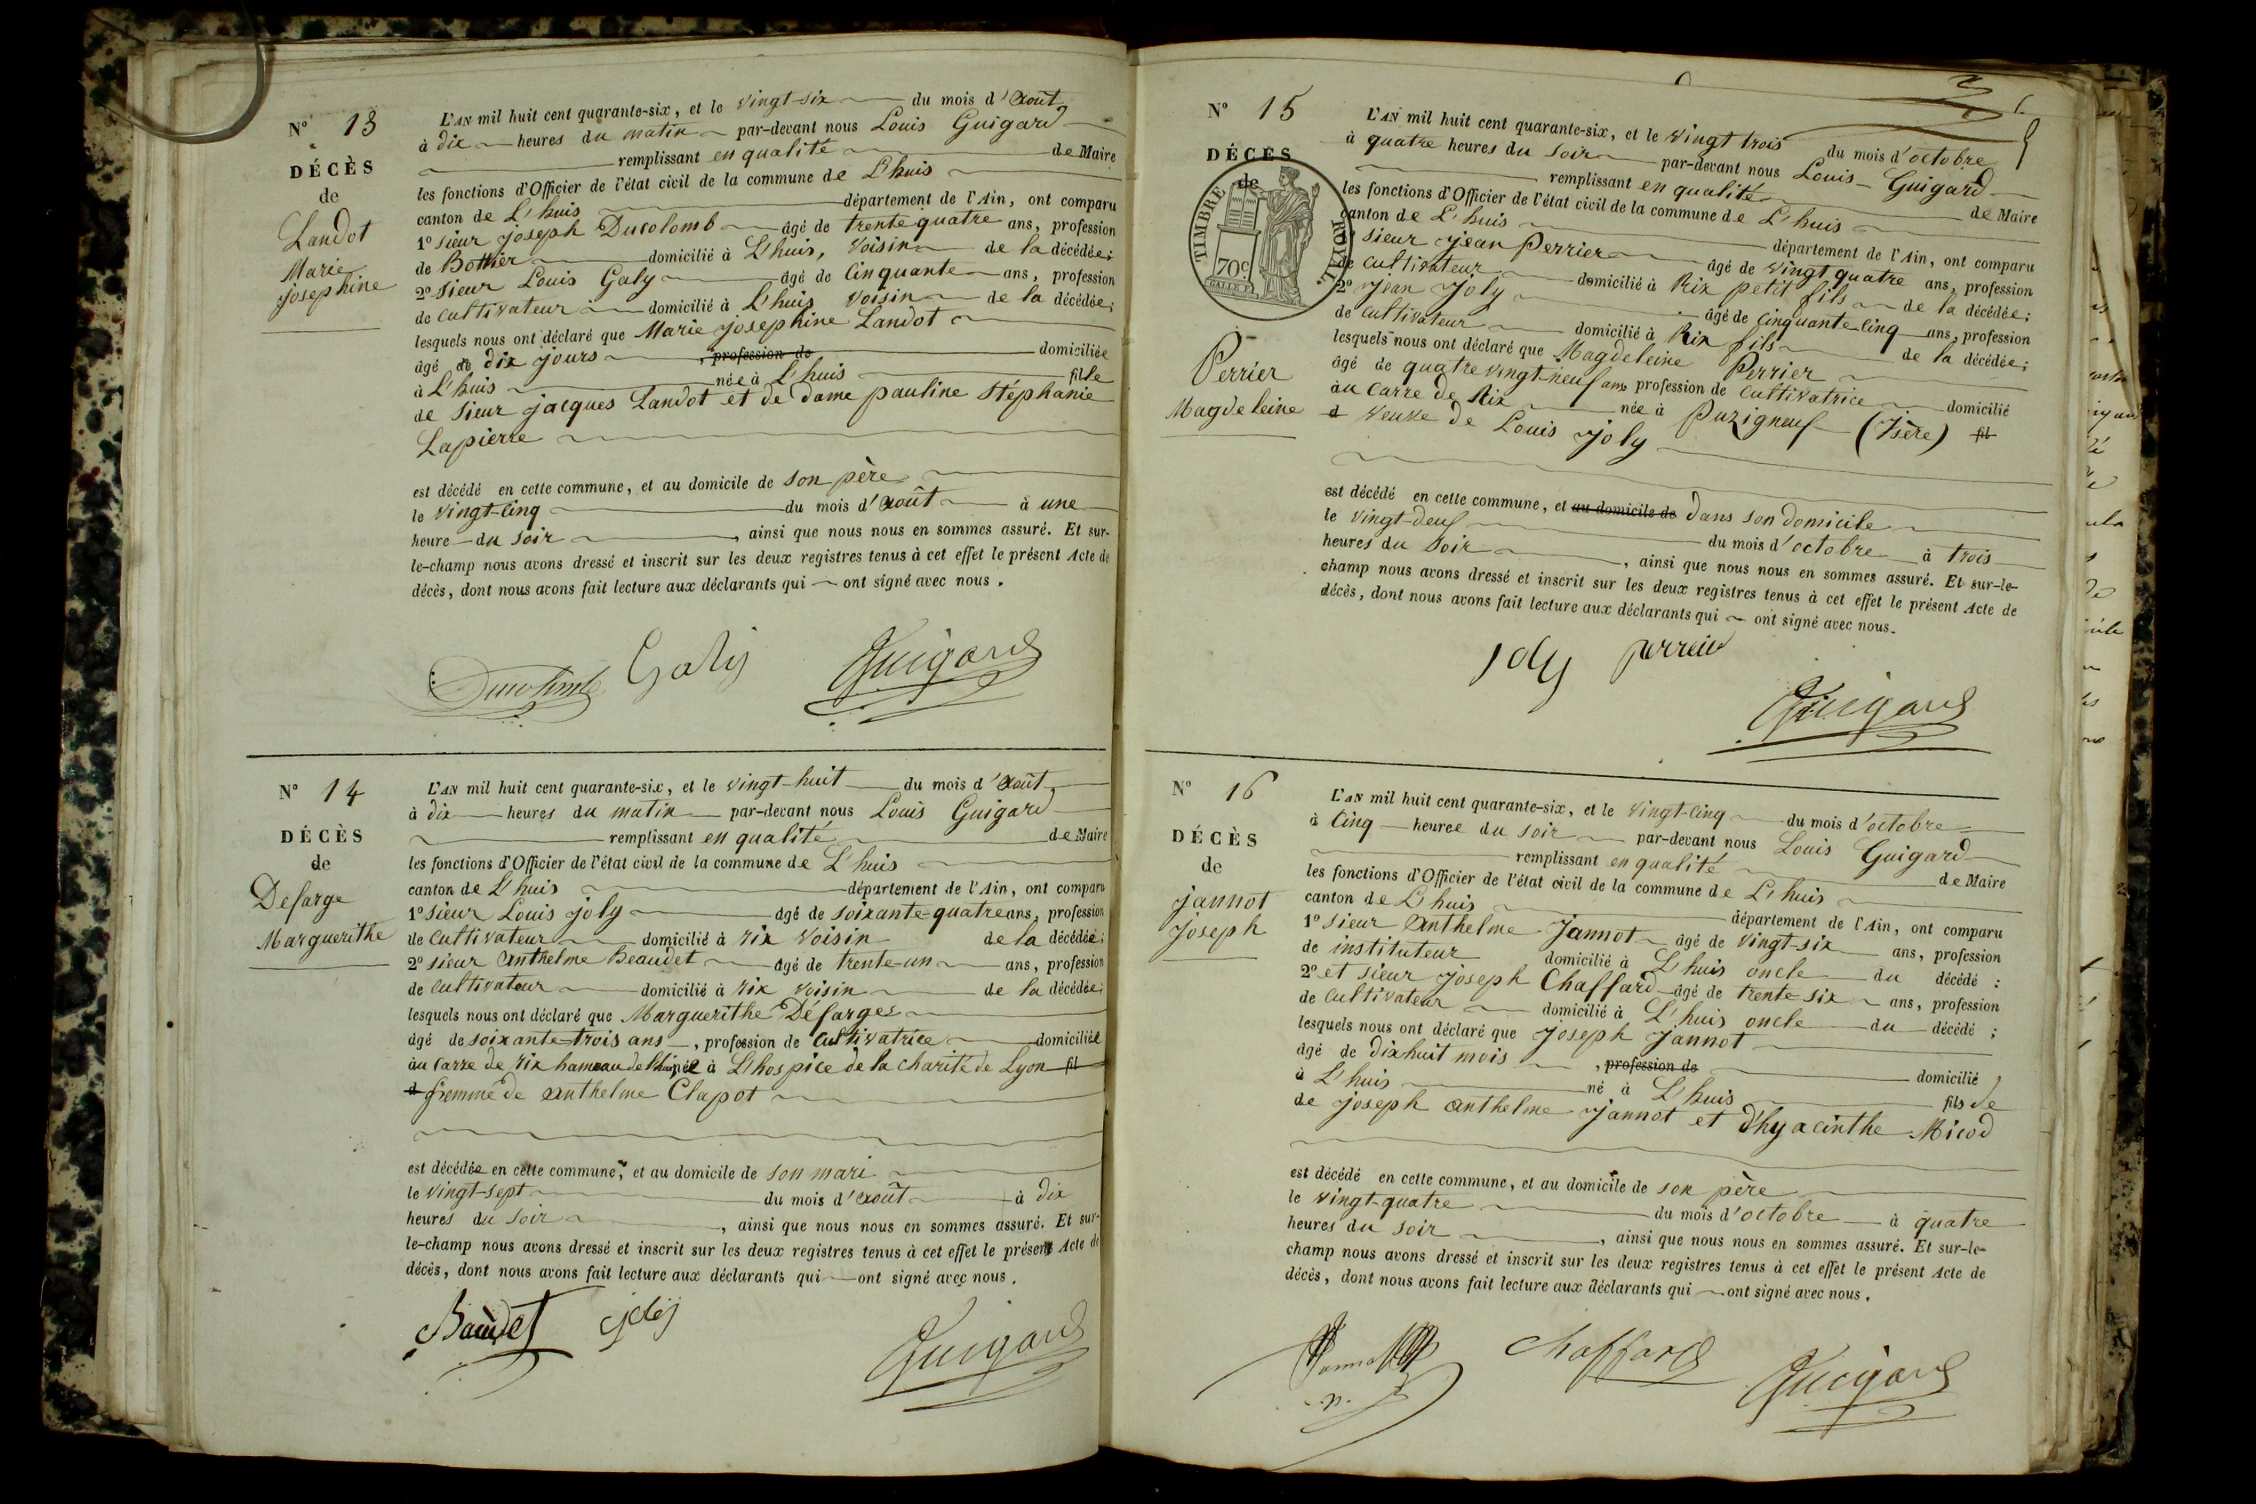 N° 13
DÉCÈS
de
Landot
Marie
josephine
L'AN mil huit cent quarante-six, et le vingt-six du mois d'août
à dix heures du matin par-devant nous Louis Guigard
remplissant en qualité de Maire
les fonctions d'Officier de l'état civil de la commune de L'huis
canton de L'huis département de l'Ain, ont comparu
1° sieur joseph Ducolomb âgé de trente quatre ans, profession
de Bottier domicilié à L'huis, voisin de la décédée;
2° sieur Louis Galy âgé de cinquante ans, profession
de cultivateur domicilié à L'huis voisin de la décédée;
lesquels nous ont déclaré que Marie josephine Landot
âgé de dix jours, profession de domiciliée
à L'huis née à L'huis fille
de sieur jacques Landot et de dame pauline Stéphanie
Lapierre
est décédé en cette commune, et au domicile de son père
le vingt-cinq du mois d'août à une
heure du soir, ainsi que nous nous en sommes assuré. Et sur-
le-champ nous avons dressé et inscrit sur les deux registres tenus à cet effet le présent Acte de
décès, dont nous avons fait lecture aux déclarants qui ont signé avec nous.
Ducolomb Galy Guigard
N° 14
DÉCÈS
de
Defarge
Marguerithe
L'AN mil huit cent quarante-six, et le vingt-huit du mois d'août
à dix heures du matin par-devant nous Louis Guigard
remplissant en qualité de Maire
les fonctions d'Officier de l'état civil de la commune de L'huis
canton de L'huis département de l'Ain, ont comparu
1° sieur Louis joly âgé de soixante-quatre ans, profession
de cultivateur domicilié à rix voisin de la décédée;
2° sieur anthelme Beaudet âgé de trente-un ans, profession
de cultivateur domicilié à rix voisin de la décédée;
lesquels nous ont déclaré que Marguerithe Défarges
âgé de soixante-trois ans, profession de cultivatrice domiciliée
au carre de rix hameau de L'huis née à L'hospice de la charité de Lyon fil
d femme de anthelme Clapot
est décédée en cette commune, et au domicile de son mari
le vingt-sept du mois d'août à dix
heures du soir, ainsi que nous nous en sommes assuré. Et sur-
le-champ nous avons dressé et inscrit sur les deux registres tenus à cet effet le présent Acte de
décès, dont nous avons fait lecture aux déclarants qui ont signé avec nous.
Baudet joly Guigard
N° 15
DÉCÈS
de
TIMBRE ROYAL
70c
Perrier
Magdeleine
L'AN mil huit cent quarante-six, et le vingt trois du mois d'octobre
à quatre heures du soir par-devant nous Louis Guigard
remplissant en qualité de Maire
les fonctions d'Officier de l'état civil de la commune de L'huis
canton de L'huis département de l'Ain, ont comparu
sieur jean Perrier âgé de vingt quatre ans, profession
de cultivateur domicilié à Rix petit fils de la décédée;
2° jean joly âgé de cinquante cinq ans, profession
de cultivateur domicilié à Rix fils de la décédée;
lesquels nous ont déclaré que Magdeleine Perrier
âgé de quatre vingt-neuf ans profession de cultivatrice domicilié
au carre de Rix née à Puzigneuf (Isère) fil
d veuve de Louis joly
est décédé en cette commune, et au domicile de dans son domicile
le vingt-deux du mois d'octobre à trois
heures du soir, ainsi que nous nous en sommes assuré. Et sur-le-
champ nous avons dressé et inscrit sur les deux registres tenus à cet effet le présent Acte de
décès, dont nous avons fait lecture aux déclarants qui ont signé avec nous.
joly perrier
Guigard
N° 16
DÉCÈS
de
jannot
joseph
L'AN mil huit cent quarante-six, et le vingt-cinq du mois d'octobre
à cinq heures du soir par-devant nous Louis Guigard
remplissant en qualité de Maire
les fonctions d'Officier de l'état civil de la commune de L'huis
canton de L'huis département de l'Ain, ont comparu
1° sieur anthelme jannot âgé de vingt-six ans, profession
de instituteur domicilié à L'huis oncle du décédé:
2° et sieur joseph Chaffard âgé de trente six ans, profession
de cultivateur domicilié à L'huis oncle du décédé;
lesquels nous ont déclaré que joseph jannot
âgé de dix huit mois, profession de domicilié
à L'huis né à L'huis fils de
de joseph anthelme jannot et d'hyacinthe Micod
est décédé en cette commune, et au domicile de son père
le vingt-quatre du mois d'octobre à quatre
heures du soir, ainsi que nous nous en sommes assuré. Et sur-le-
champ nous avons dressé et inscrit sur les deux registres tenus à cet effet le présent Acte de
décès, dont nous avons fait lecture aux déclarants qui ont signé avec nous.
Jannot Chaffard Guigard